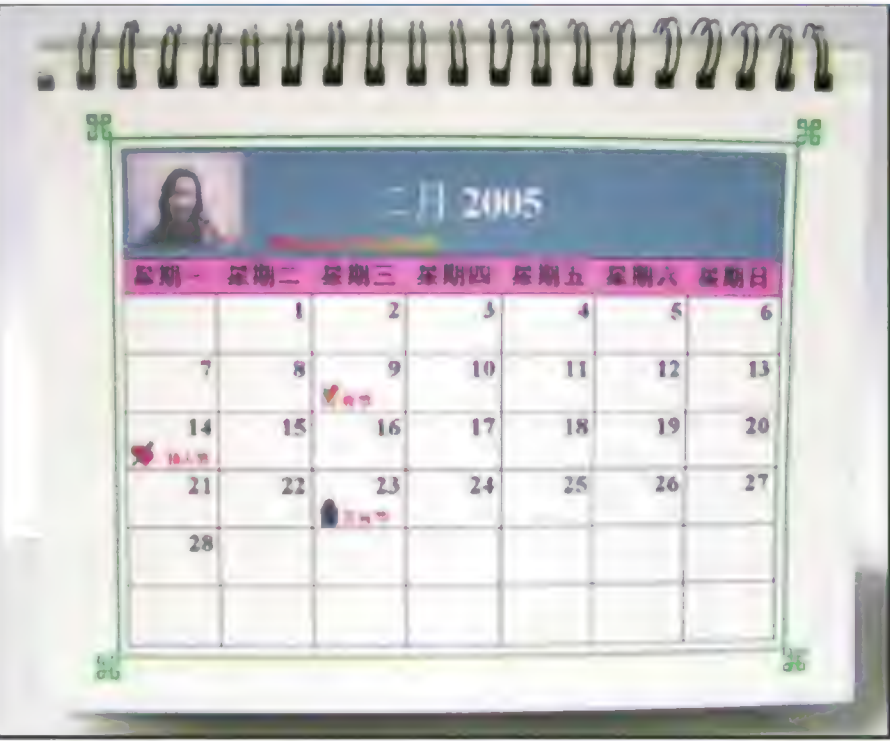 二月 2005
星期一 星期二 星期三 星期四 星期五 星期六 星期日
1 2 3 4 5 6
7 8 9 10 11 12 13
春节
14 15 16 17 18 19 20
情人节
21 22 23 24 25 26 27
元宵节
28